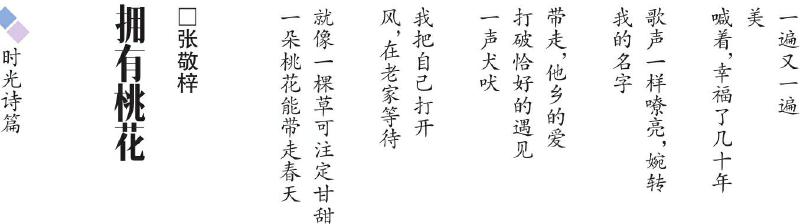 时光诗篇
拥有桃花
□张敬梓
一朵桃花能带走春天
就像一棵草可注定甘甜
风，在老家等待
我把自己打开
一声犬吠
打破恰好的遇见
带走，他乡的爱
我的名字
歌声一样嘹亮，婉转
喊着，幸福了几十年
美
一遍又一遍